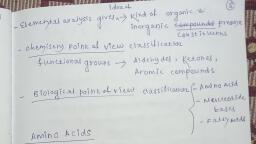 Idea of
- Elemental analysis gives → Kind of organic &
inorganic compounds present
constituents
- chemistry point of view classification
functional groups → Aldehydes, Ketones,
Aromic compounds
- Biological point of view classification - Amino Acid
- Nucleotide
bases
- Fatty acids
Amino Acids